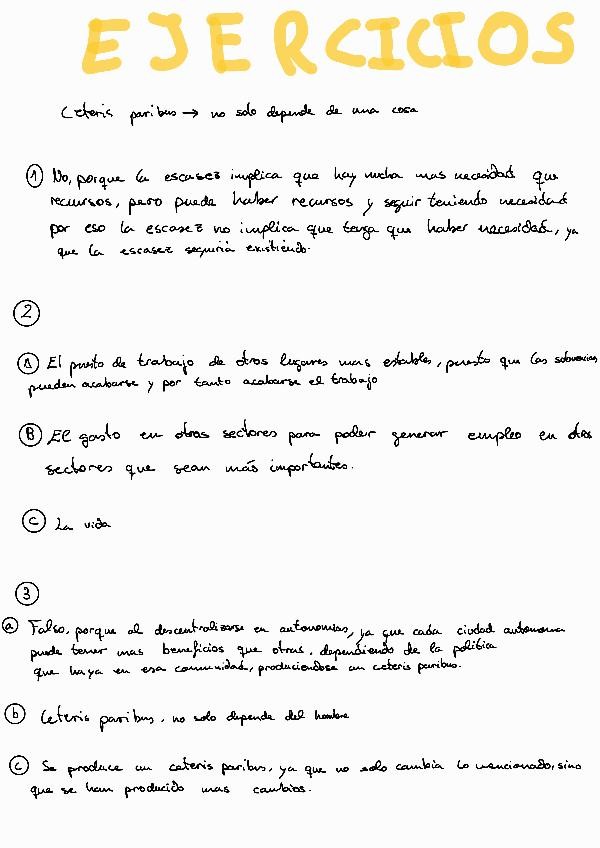 EJERCICIOS
Ceteris paribus → no solo depende de una cosa
① No, porque la escasez implica que hay mucha mas necesidad que
recursos, pero puede haber recursos y seguir teniendo necesidad
por eso la escasez no implica que tenga que haber necesidad, ya
que la escasez seguiria existiendo.
②
Ⓐ El puesto de trabajo de otros lugares mas estables, puesto que las subvenciones
pueden acabarse y por tanto acabarse el trabajo
Ⓑ El gasto en otros sectores para poder generar empleo en otros
sectores que sean más importantes.
Ⓒ La vida
③
ⓐ Falso, porque al descentralizarse en autonomias, ya que cada ciudad autonoma
puede tener mas beneficios que otras, dependiendo de la politica
que haya en esa comunidad, produciendose un ceteris paribus.
ⓑ Ceteris paribus, no solo depende del hombre
ⓒ Se produce un ceteris paribus, ya que no solo cambia lo mencionado, sino
que se han producido mas cambios.